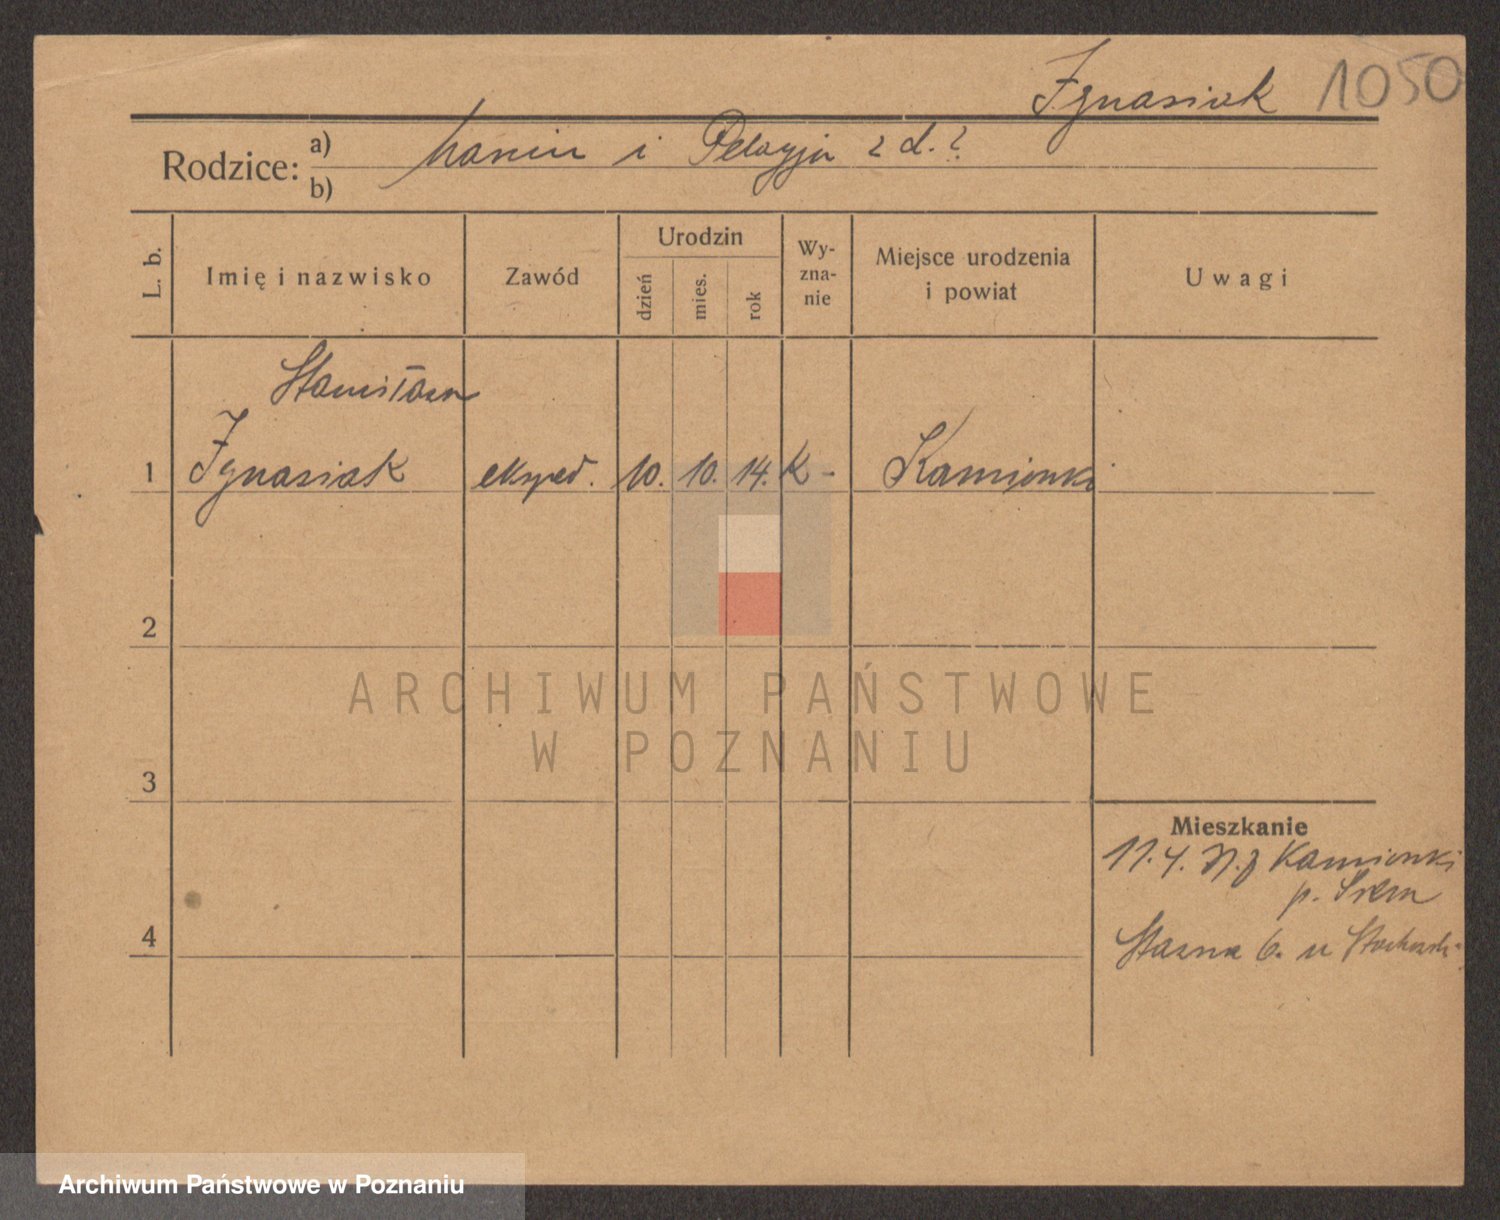 Ignasiak 1050
Rodzice: a) Marcin i Pelagja z d. ?
b)
L. b. Imię i nazwisko Zawód Urodzin dzień mies. rok Wy-zna-nie Miejsce urodzenia i powiat Uwagi
Stanisława
1 Ignasiak eksped. 10. 10. 14. K - Kamionki
2
ARCHIWUM PAŃSTWOWE
W POZNANIU
3
Mieszkanie
11.4. Kamionki
p. Śrem
4
6. u
Archiwum Państwowe w Poznaniu